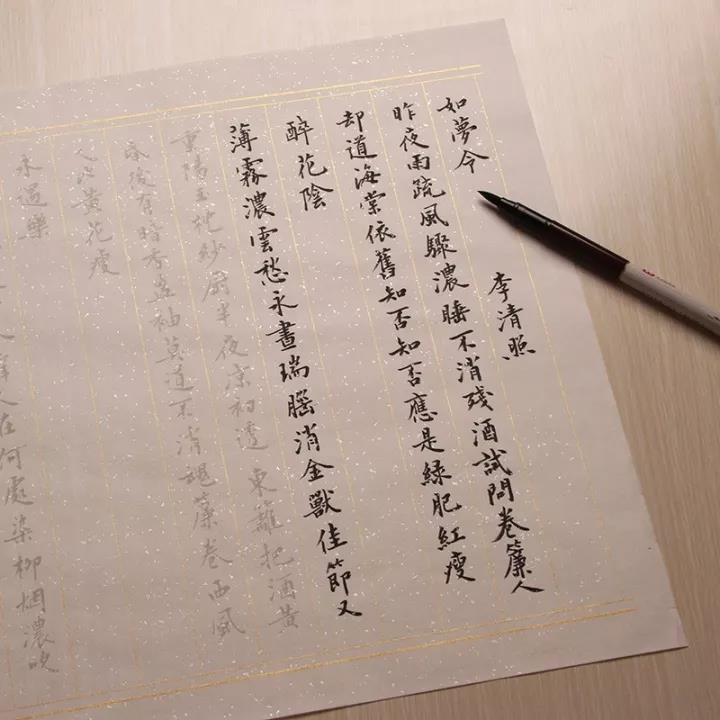 如夢令 李清照
昨夜雨疏風驟濃睡不消殘酒試問卷簾人
却道海棠依舊知否知否應是緑肥紅瘦
醉花陰
薄霧濃雲愁永晝瑞腦消金獸佳節又
重陽玉枕紗厨半夜凉初透 東籬把酒黄
昏後有暗香盈袖莫道不消魂簾卷西風
人比黄花瘦
永遇樂
人在何處染柳烟濃吹